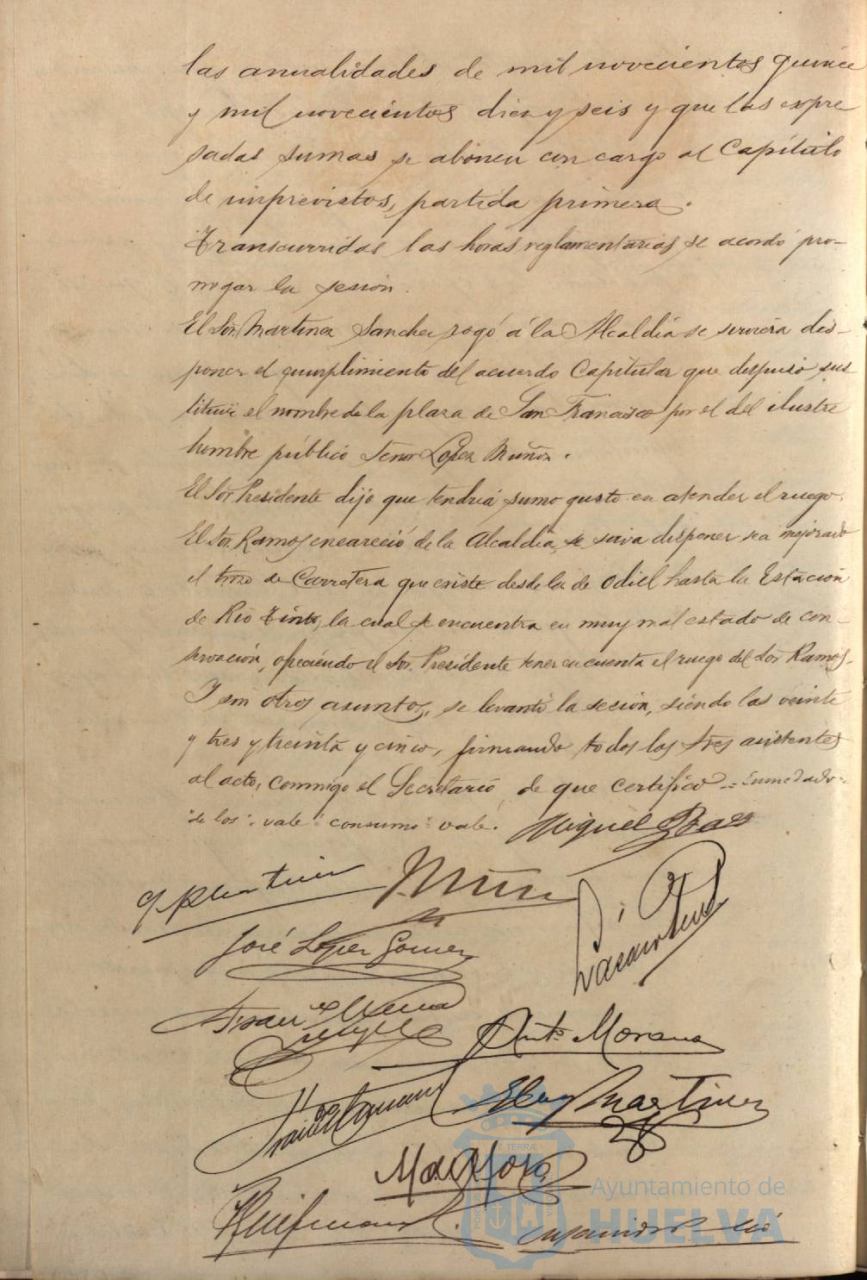 las anualidades de mil novecientos quince
y mil novecientos diez y seis y que las expre
sadas sumas se abonen con cargo al Capítulo
de imprevistos, partida primera.
Transcurridas las horas reglamentarias se acordó pro-
rrogar la sesión.
El Sor. Martinez Sanchez rogó á la Alcaldía se sirviera dis-
poner el cumplimiento del acuerdo Capitular que dispuso sus
tituir el nombre de la plaza de San Francisco por el del ilustre
hombre público Señor López Muñoz.
El Sor Presidente dijo que tendría sumo gusto en atender el ruego.
El Sor. Ramos encareció de la Alcaldía, se sirva disponer sea mejorado
el trozo de Carretera que existe desde la de Odiel hasta la Estación
de Rio Tinto, la cual se encuentra en muy mal estado de con-
servación, ofreciendo el Sor. Presidente tener en cuenta el ruego del Sor Ramos.
Y sin otros asuntos, se levantó la sesión, siendo las veinte
y tres y treinta y cinco, firmando todos los Sres asistentes
al acto, conmigo el Secretario, de que certifico = Enmendado =
"de los": vale "consumo" vale.
José López Gomez
Antº Moreno
Eloy Martinez
Ayuntamiento de
HUELVA